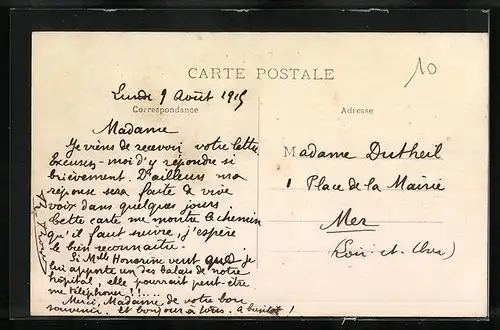 CARTE POSTALE
10
Lundi 9 Août 1915
Correspondance
Adresse
Madame
Je viens de recevoir votre lettre.
Excusez-moi d'y répondre si
brièvement. D'ailleurs ma
réponse sera faite de vive
voix dans quelques jours
Cette carte me montre le chemin
qu'il faut suivre, j'espère
le bien reconnaître.
Si Mlle Honorine veut que je
lui apporte un des balais de notre
hôpital, elle pourrait peut être
me téléphoner !!....
Merci, Madame de votre bon
souvenir. Et bonjour à tous. A bientôt !
Madame Dutheil
1 Place de la Mairie
Mer
(Loir-et-Cher)